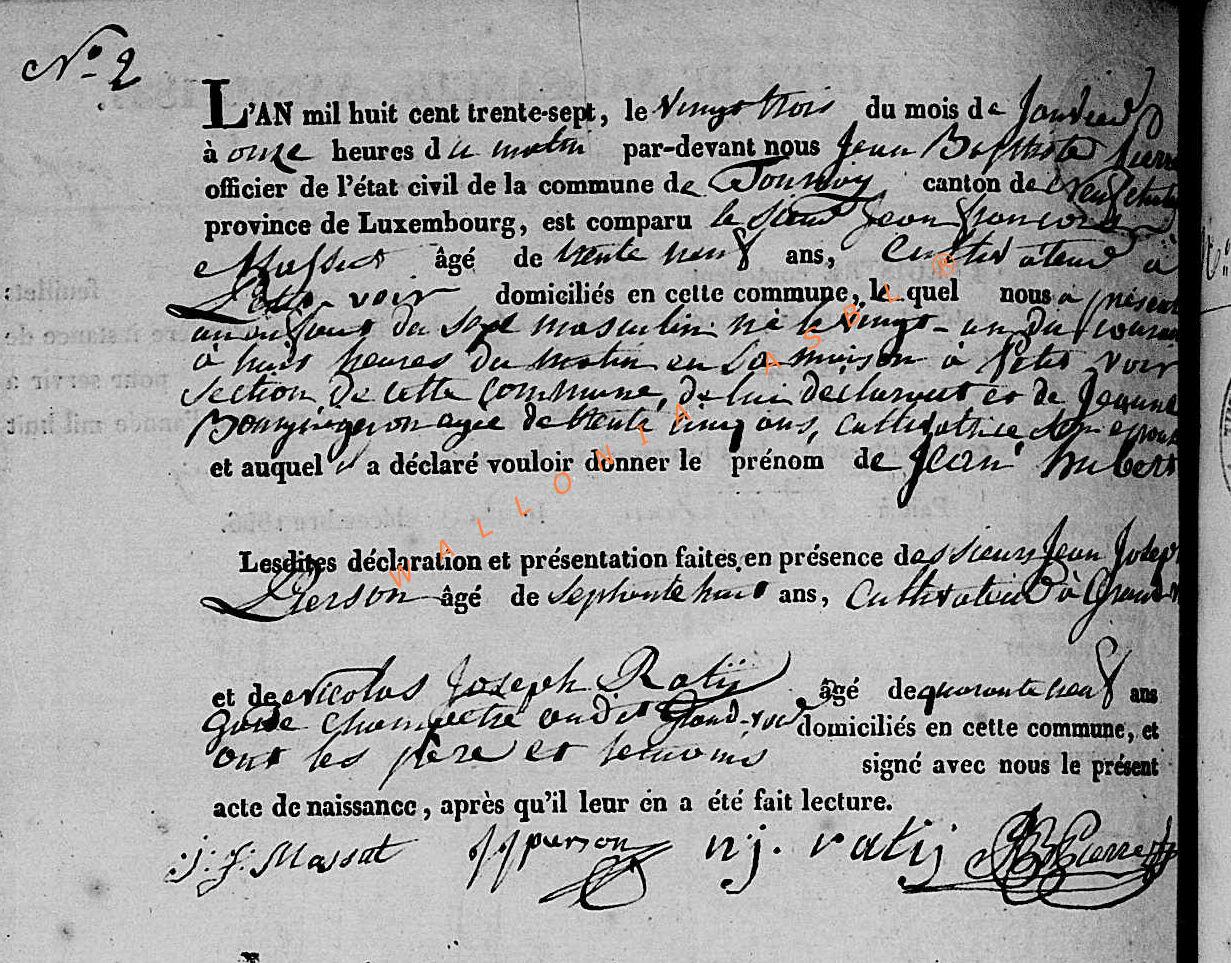 N° 2
L'AN mil huit cent trente-sept, le vingt trois du mois de Janvier
à onze heures du matin par-devant nous Jean Baptiste Pierre
officier de l'état civil de la commune de Tournay, canton de Neufchateau
province de Luxembourg, est comparu le sieur Jean François
Massut âgé de trente neuf ans, Cultivateur à
Petit-voir domiciliés en cette commune, lequel nous a présenté
un enfant du sexe masculin né le vingt-un du courant
à huit heures du matin en sa maison à Petit voir
section de cette commune, de lui déclarant et de Jeanne
agée de trente cinq ans, cultivatrice son épouse
et auquel il a déclaré vouloir donner le prénom de Jean hubert
Lesdites déclaration et présentation faites en présence des sieurs Jean Joseph
Pierson âgé de septante huit ans, Cultivateur à Grand
et de Nicolas Joseph Ratij âgé de quarante neuf ans
garde champetre audit Grand-voir domiciliés en cette commune, et
ont les père et temoins signé avec nous le présent
acte de naissance, après qu'il leur en a été fait lecture.
J. J. Massut JJ pierson n j. ratij JB Pierre
WALLONIA ASBL ®